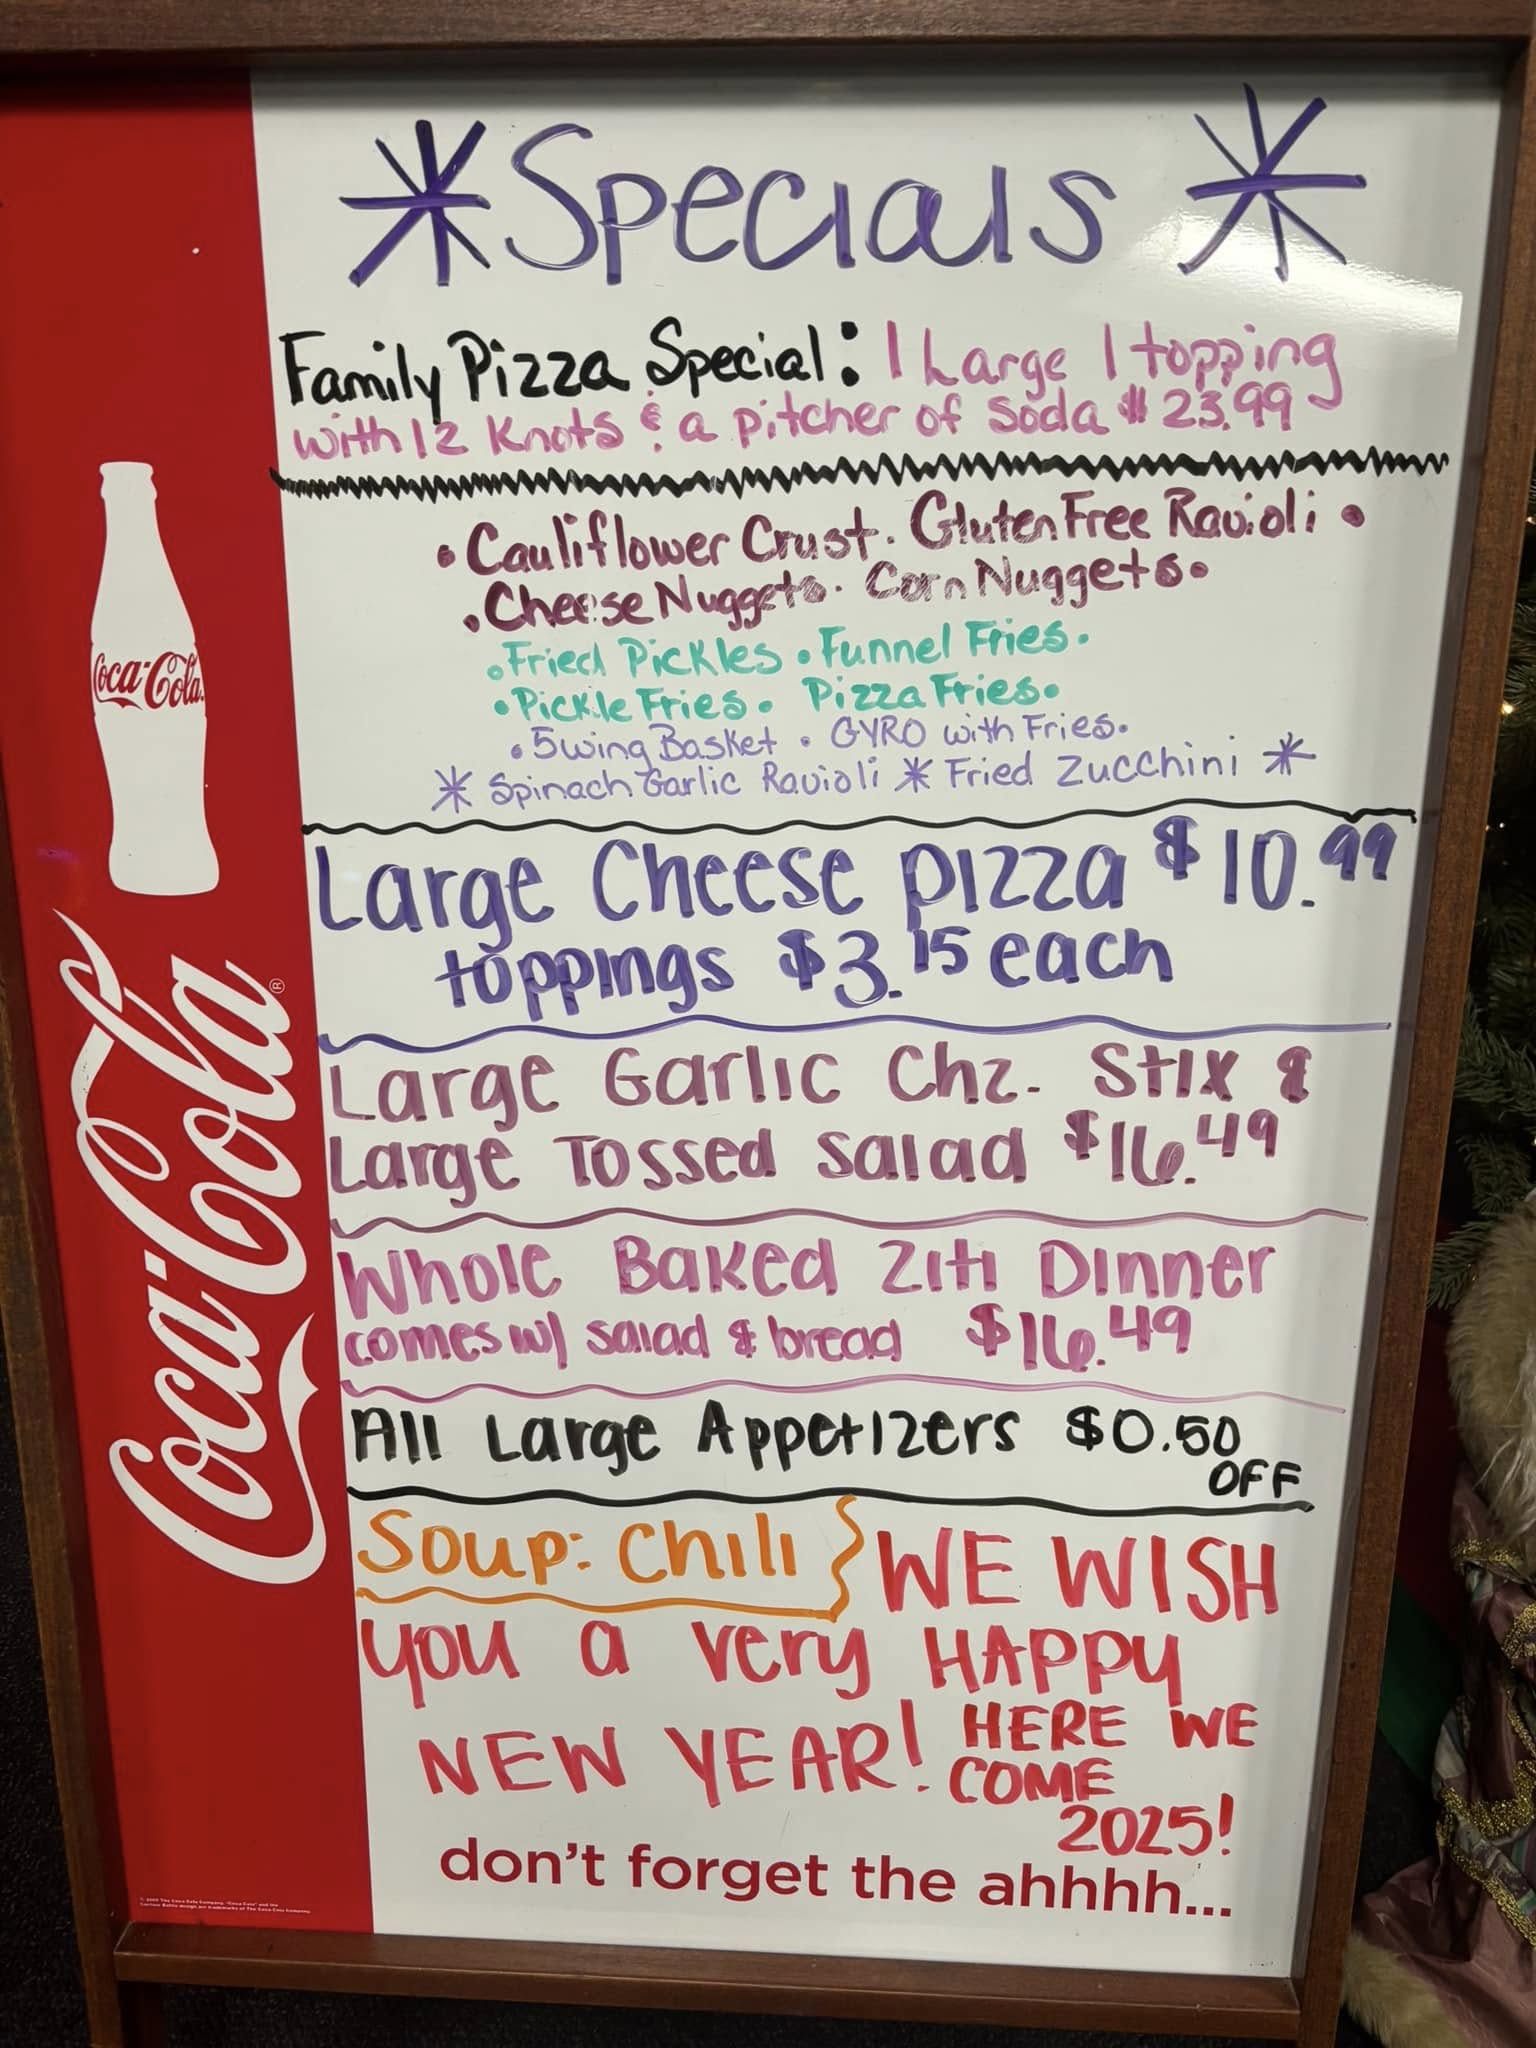 *Specials*
Family Pizza Special: 1 Large 1 topping
with 12 Knots & a pitcher of Soda $23.99
• Cauliflower Crust • Gluten Free Ravioli •
• Cheese Nuggets • Corn Nuggets •
• Fried Pickles • Funnel Fries •
• Pickle Fries • Pizza Fries •
• 5 wing Basket • GYRO with Fries •
* Spinach Garlic Ravioli * Fried Zucchini *
Large Cheese pizza $10.99
toppings $3.15 each
Large Garlic Chz. Stix &
Large Tossed salad $16.49
Whole Baked Ziti Dinner
comes w/ salad & bread $16.49
All Large Appetizers $0.50
OFF
Soup: Chili } WE WISH
you a very HAPPY
NEW YEAR! HERE WE
COME
2025!
don't forget the ahhhh...
Coca-Cola
Coca-Cola®